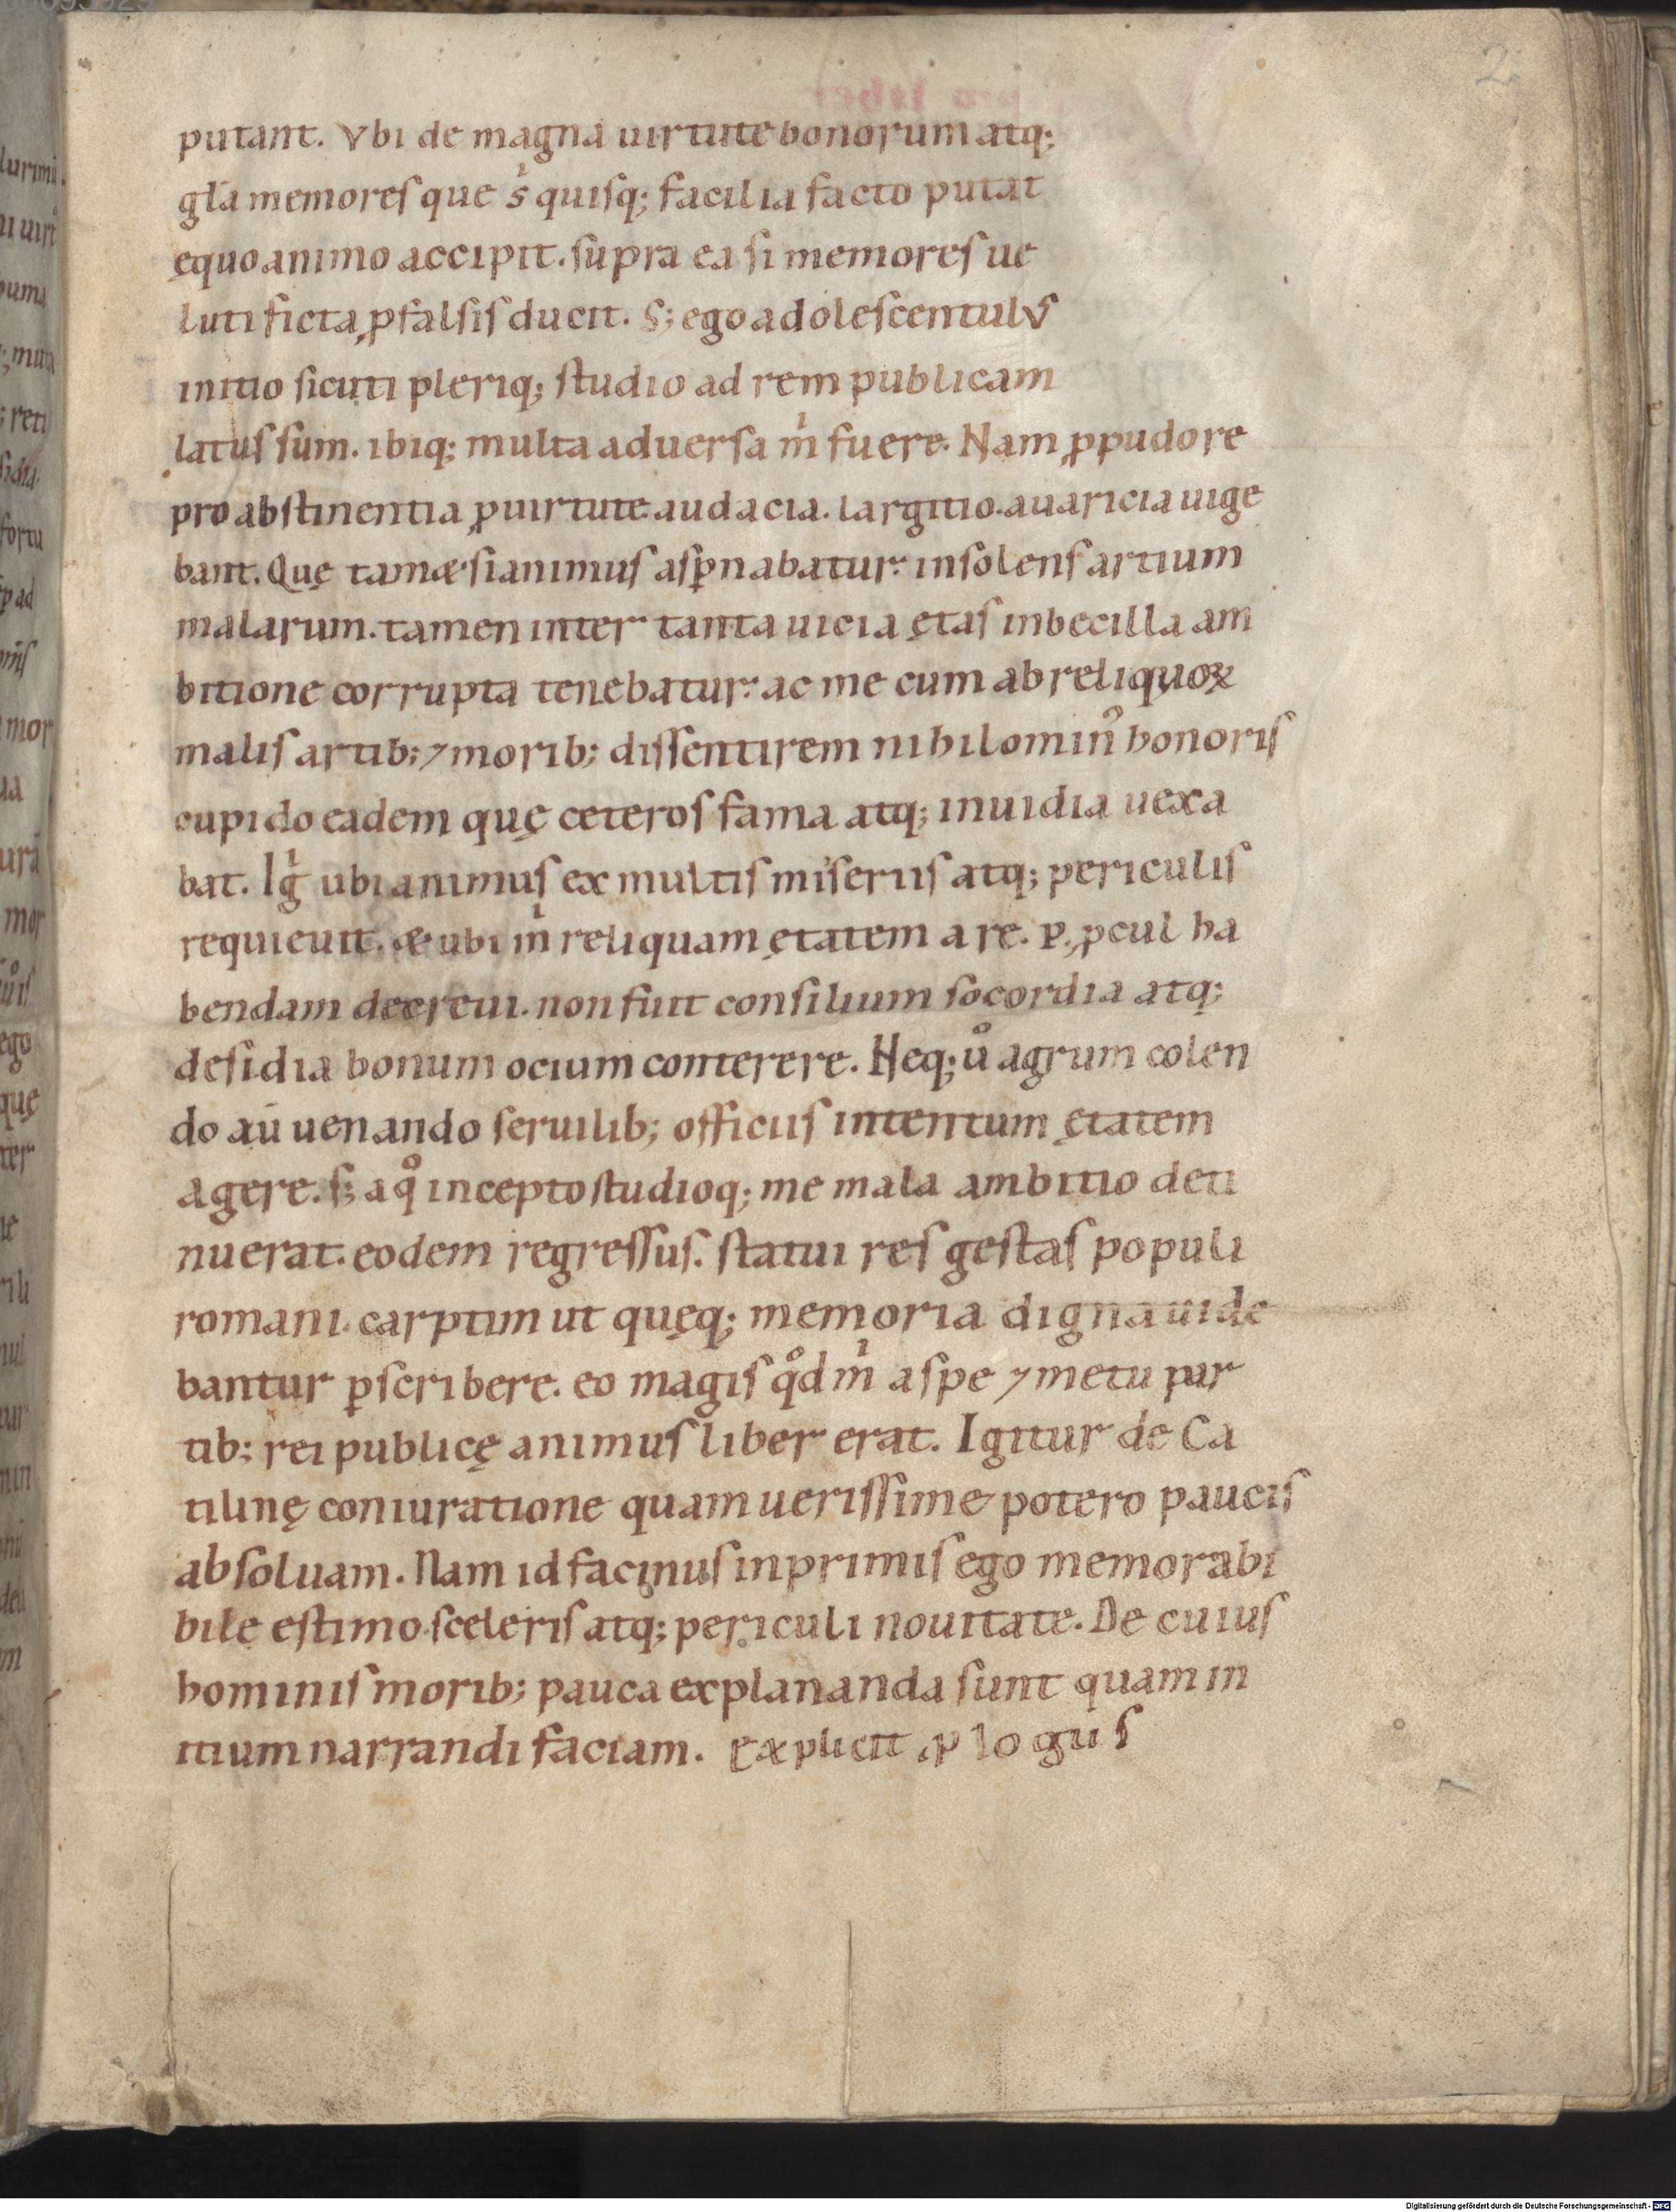 2
putant. Vbi de magna uirtute bonorum atq;
gła memoreſ que ſ̓ quiſq; facilia facto putat
ęquo animo accipit. supra ea si memoreſ ue
luti ficta ꝓ falſiſ ducit. S; ego adoleſcentulus
initio ſicuti pleriq; ſtudio ad rem publicam
latuſ ſum. ibiq; multa aduerſa mͥ fuere. Nam ꝓ pudore
pro abſtinentia ꝓ uirtute audacia. largitio. auaricia uige
bant. Quę tam&ſi animuſ aſꝑnabatur: inſolenſ artium
malarum. tamen inter tanta uicia ętaſ inbecilla am
bitione corrupta tenebatur: ac me cum ab reliquoꝝ
maliſ artib; ⁊ morib; diſſentirem nihilomin᾽ honoriſ
cupido eadem quę ceteroſ fama atq; inuidia uexa
bat. Igͥ ubi animuſ ex multiſ miſeriiſ atq; periculiſ
requieuit. & ubi mͥ reliquam ętatem a re. p. ꝓcul ha
bendam decreui. non fuit conſilium ſocordia atq;
deſidia bonum ocium conterere. Neq; uͦ agrum colen
do aū uenando ſeruilib; officiiſ intentum ętatem
agere. ſ; a qͦ incepto ſtudioq; me mala ambitio deti
nuerat. eodem regreſſuſ. ſtatui reſ geſtaſ populi
romani. carptim ut quęq; memoria digna uide
bantur ꝑſcribere. eo magiſ qͦd mͥ a ſpe ⁊ metu par
tib; rei publicę animuſ liber erat. Igitur de Ca
tilinę coniuratione quam ueriſſime potero pauciſ
abſoluam. Nam id facinuſ inprimiſ ego memorabi
bile ęſtimo ſceleriſ atq; periculi nouitate. De cuiuſ
hominiſ morib; pauca explananda ſunt quam in
itium narrandi faciam. Explicit ꝓloguſ
Digitalisierung gefördert durch die Deutsche Forschungsgemeinschaft - DFG